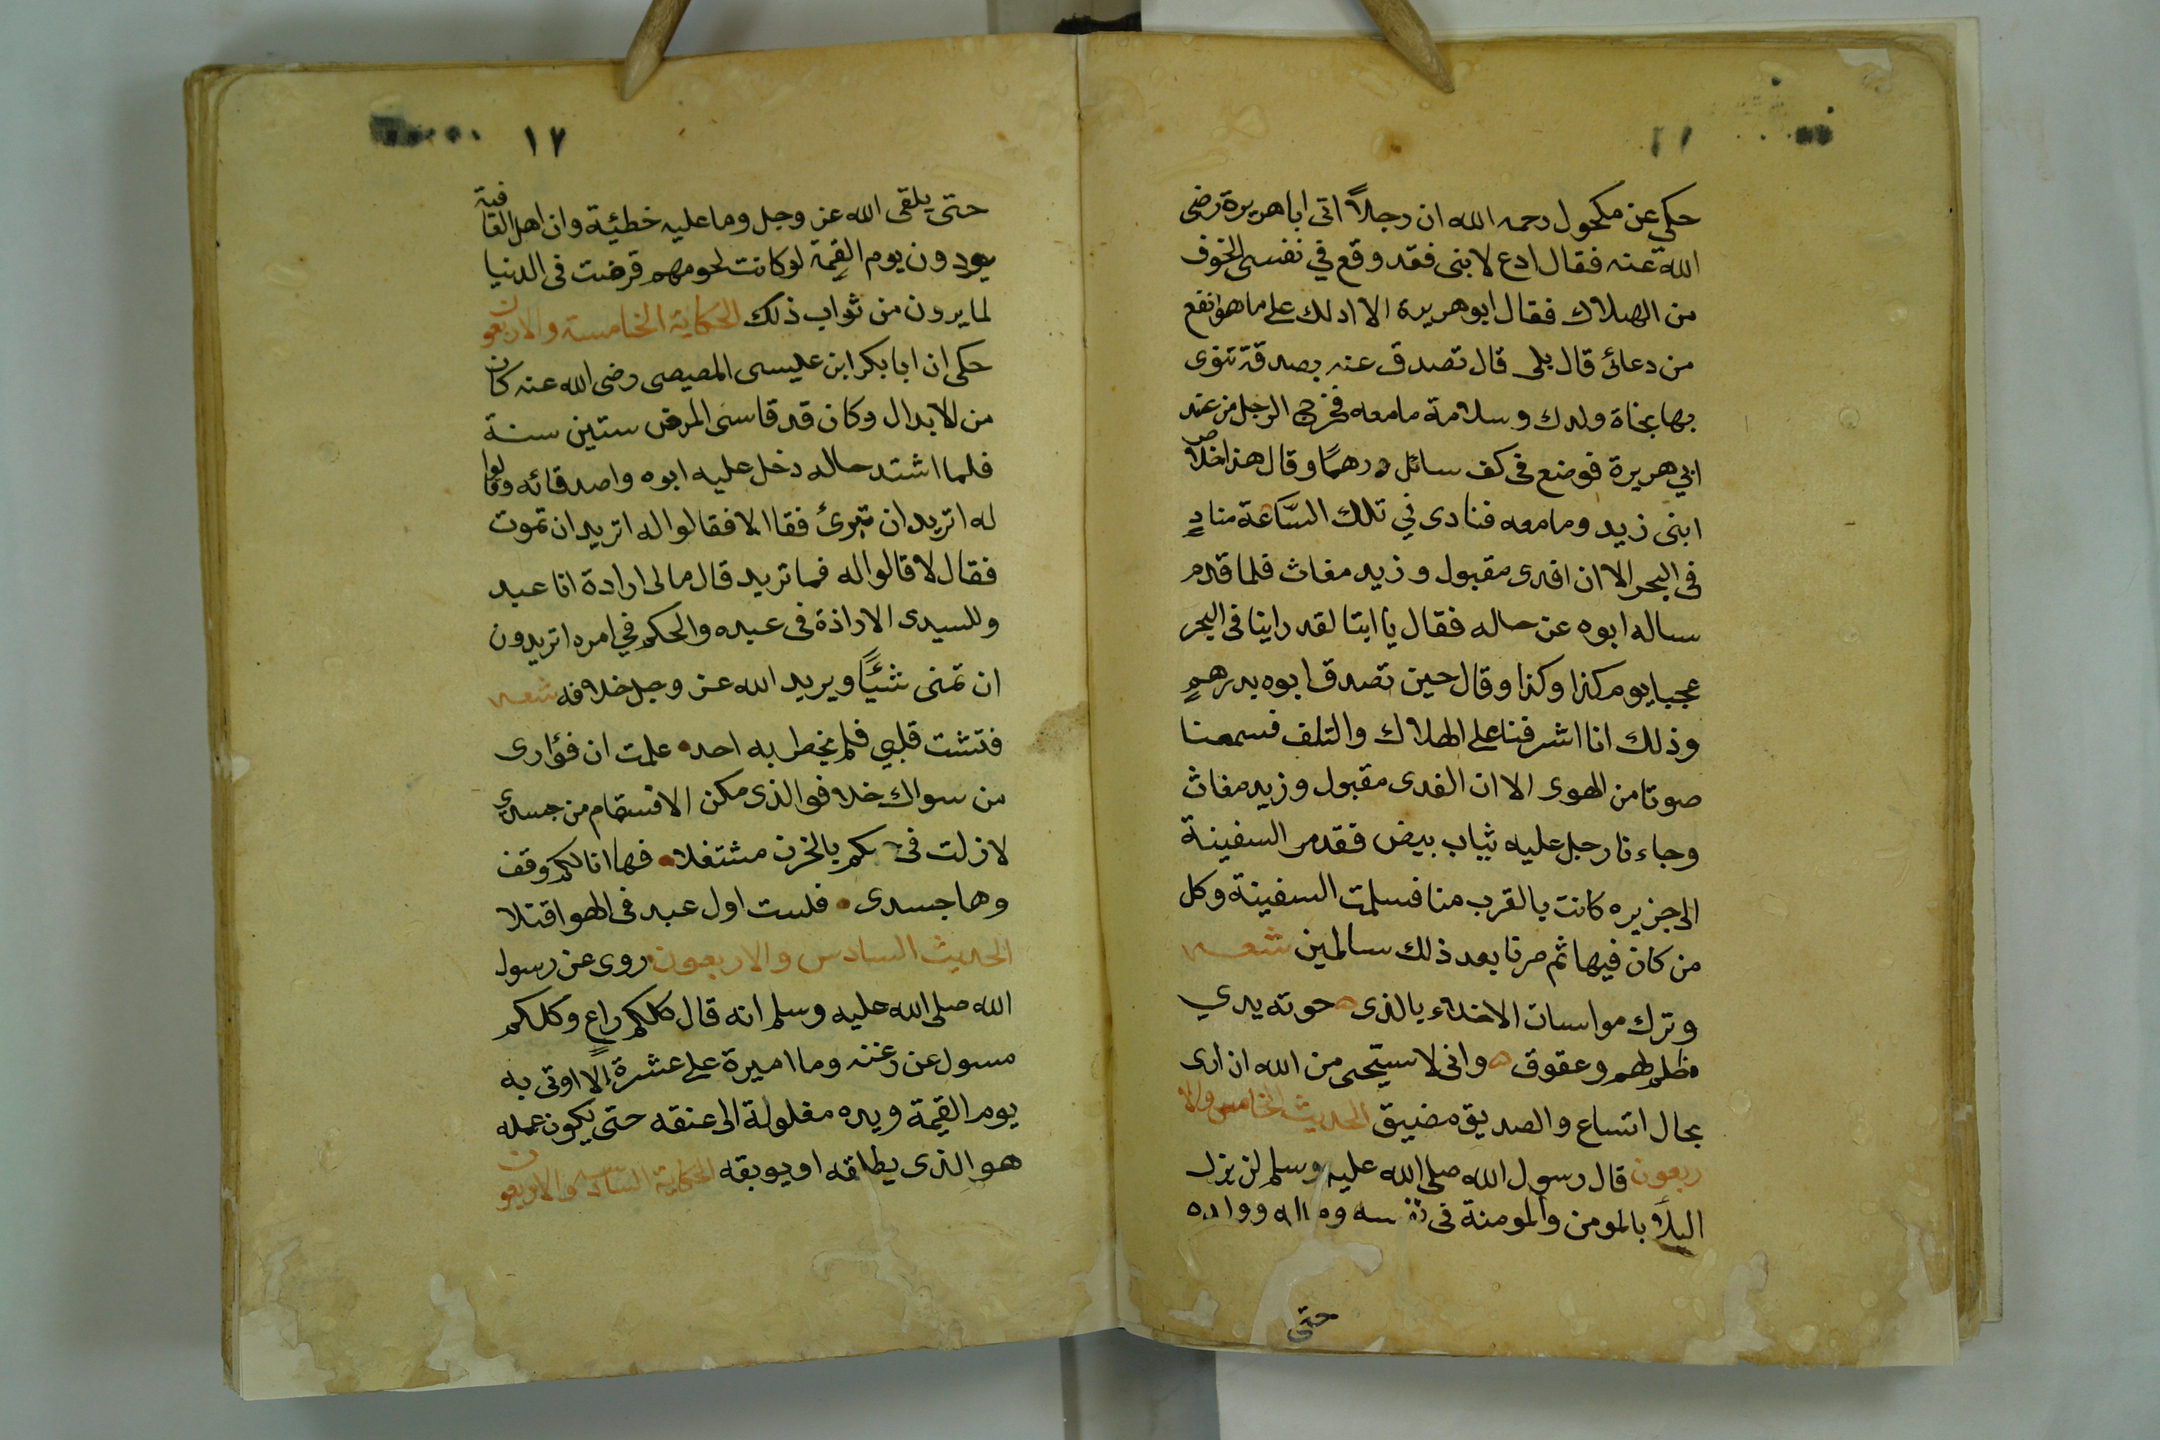 حكى عن مكحول رحمه الله ان رجلاً اتى ابا هريرة رضى
الله عنه فقال ادع لابنى فقد وقع في نفسى الخوف
من الهلاك فقال ابو هريرة الا ادلك على ما هو انفع
من دعائى قال بلى قال تصدق عنه بصدقة تنوى
بها نجاة ولدك وسلامة ما معه فخرج الرجل من عند
ابي هريرة فوضع فى كف سائل درهمًا وقال هذا خلاص
ابنى زيد وما معه فنادى في تلك السَّاعة منادٍ
فى البحر الا ان افدى مقبول وزيد مغاث فلما قدم
ساله ابوه عن حاله فقال يا ابتا لقد راينا فى البحر
عجبا يوم كذا وكذا وقال حين تصدق ابوه بدرهمٍ
وذلك انا اشرفنا على الهلاك والتلف فسمعنا
صوتا من الهوى الا ان الفدى مقبول وزيد مغاث
وجاءنا رجل عليه ثياب بيض فقدم السفينة
الى جزيره كانت بالقرب منا فسلمت السفينة وكل
من كان فيها ثم مرنا بعد ذلك سالمين شعر
وترك مواسات الاخلاء بالذى حوته يدي
ظلم لهم وعقوق وانى لاستحى من الله ان ارى
بحال اتساع والصديق مضيق الحديث الخامس والا
ربعون قال رسول الله صلى الله عليه وسلم لن يزل
البلاَ بالمومن والمومنة فى نفسه وماله وولده
حتى
١٧
حتى يلقى الله عز وجل وما عليه خطئية وان اهل العافية
يودون يوم القيمة لو كانت لحومهم قرضت فى الدنيا
لما يرون من ثواب ذلك الحكاية الخامسة والاربعون
حكى ان ابا بكر ابن عليسى المصيصى رضى الله عنه كان
من لابدال وكان قد قاسى المرض ستين سنة
فلما اشتد حاله دخل عليه ابوه واصدقائه وقالوا
له اتريد ان تبرئ فقا الا فقالوا له اتريد ان تموت
فقال لا قالوا له فما تريد قال مالى ارادة انا عبد
وللسيدى الاراذة فى عبده والحكم في امره اتريدون
ان تمنى شئيًا ويريد الله عز وجل خلافه شعر
فتشت قلبي فلم يخطر به احد علمت ان فؤارى
من سواك خلا فوالذى مكن الاقسقام من جسدي
لا زلت فى بكم بالحزن مشتغلا فها انا لكم وقف
وها جسدى فلست اول عبد فى الهوا قتلا
الحديث السادس والاربعون روى عن رسول
الله صلى الله عليه وسلم انه قال كلكم راعٍ وكلكم
مسول عن رغنه وما اميرة على عشرة إلا اوتى به
يوم القيمة ويده مغلولة الى عنقه حتى يكون عمله
هو الذى يطلقه او يوبقه الحكاية السادسه والاربعون